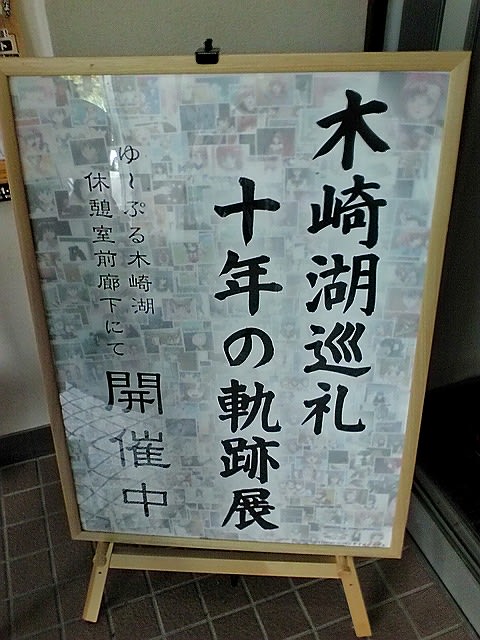 木崎湖巡礼
十年の軌跡展
ゆ～ぷる木崎湖
休憩室前廊下にて
開催中